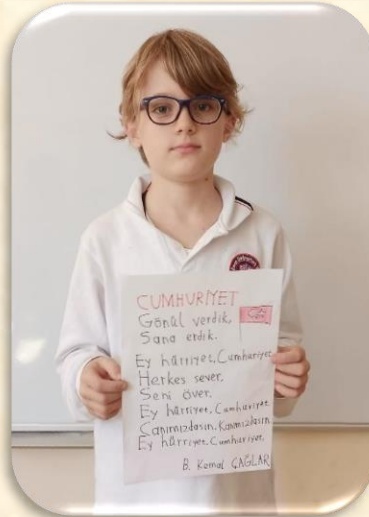 CUMHURİYET
Gönül verdik,
Sana erdik.
Ey hürriyet, Cumhuriyet
Herkes sever,
Seni över,
Ey hürriyet, Cumhuriyet
Canımızdasın, Kanımızdasın
Ey hürriyet, Cumhuriyet,
B. Kemal ÇAĞLAR